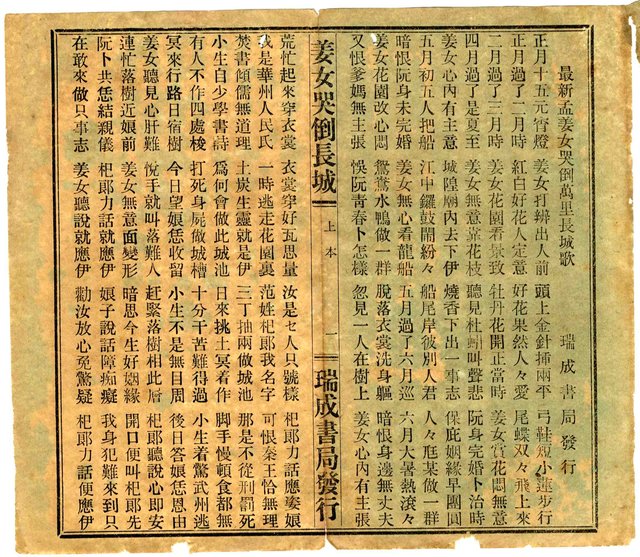 最新孟姜女哭倒萬里長城歌 瑞成書局發行
正月十五元宵燈 姜女打辦出人前 頭上金針揷兩平 弓鞋短小蓮步行
正月過了二月時 紅白好花人定意 好花果然人々愛 尾蝶双々飛上來
二月過了三月時 姜女花園看景致 牡丹花開正當時 姜女賞花悶無意
四月過了是夏至 姜女無意靠花枝 聽見杜蜎叫聲悲 阮身完婚卜治時
姜女心內有主意 城隍廟內去下伊 燒香下出一事志 保庇姻緣早團圓
五月初五人把船 江中鑼鼓鬧紛々 船尾岸彼別人君 人々尫某做一群
暗恨阮身未完婚 姜女無心看龍船 五月過了六月巡 六月大暑熱滾々
姜女花園改心悶 鴛鴦水鴨做一群 脫落衣裳洗身軀 暗恨身邊無丈夫
又恨爹媽無主張 悞阮靑春卜怎樣 忽見一人在樹上 姜女心內有主張
姜女哭倒長城 上本 一 瑞成書局發行
荒忙起來穿衣裳 衣裳穿好瓦思量 汝是乜人只號樣 杞郎力話應姜娘
我是華州人民氏 一時逃走花園裏 范姓杞郎我名字 可恨秦王恰無理
焚書傾儒無道理 土炭生靈就是伊 三丁抽兩做城池 那是不從刑罰死
小生自少學書詩 爲何會做此城池 日來挑土冥着作 脚手慢頓食都無
有人不作四處梭 打死身屍做城槽 十分干苦難得過 小生着驚武州逃
冥來行路日宿樹 今日望娘恁收留 小生不是無目周 後日答娘恁恩由
姜女聽見心肝難 悅手就叫落難人 赶緊落樹相此層 杞郎聽說心即安
連忙落樹近娘前 姜女無意面變形 暗思今生好姻緣 開口便叫杞郎先
阮卜共恁結親儀 杞郎力話就應伊 娘子說話障痴癡 我身犯難來到只
在敢來做只事志 姜女聽說就應伊 勸汝放心免驚疑 杞郎力話便應伊